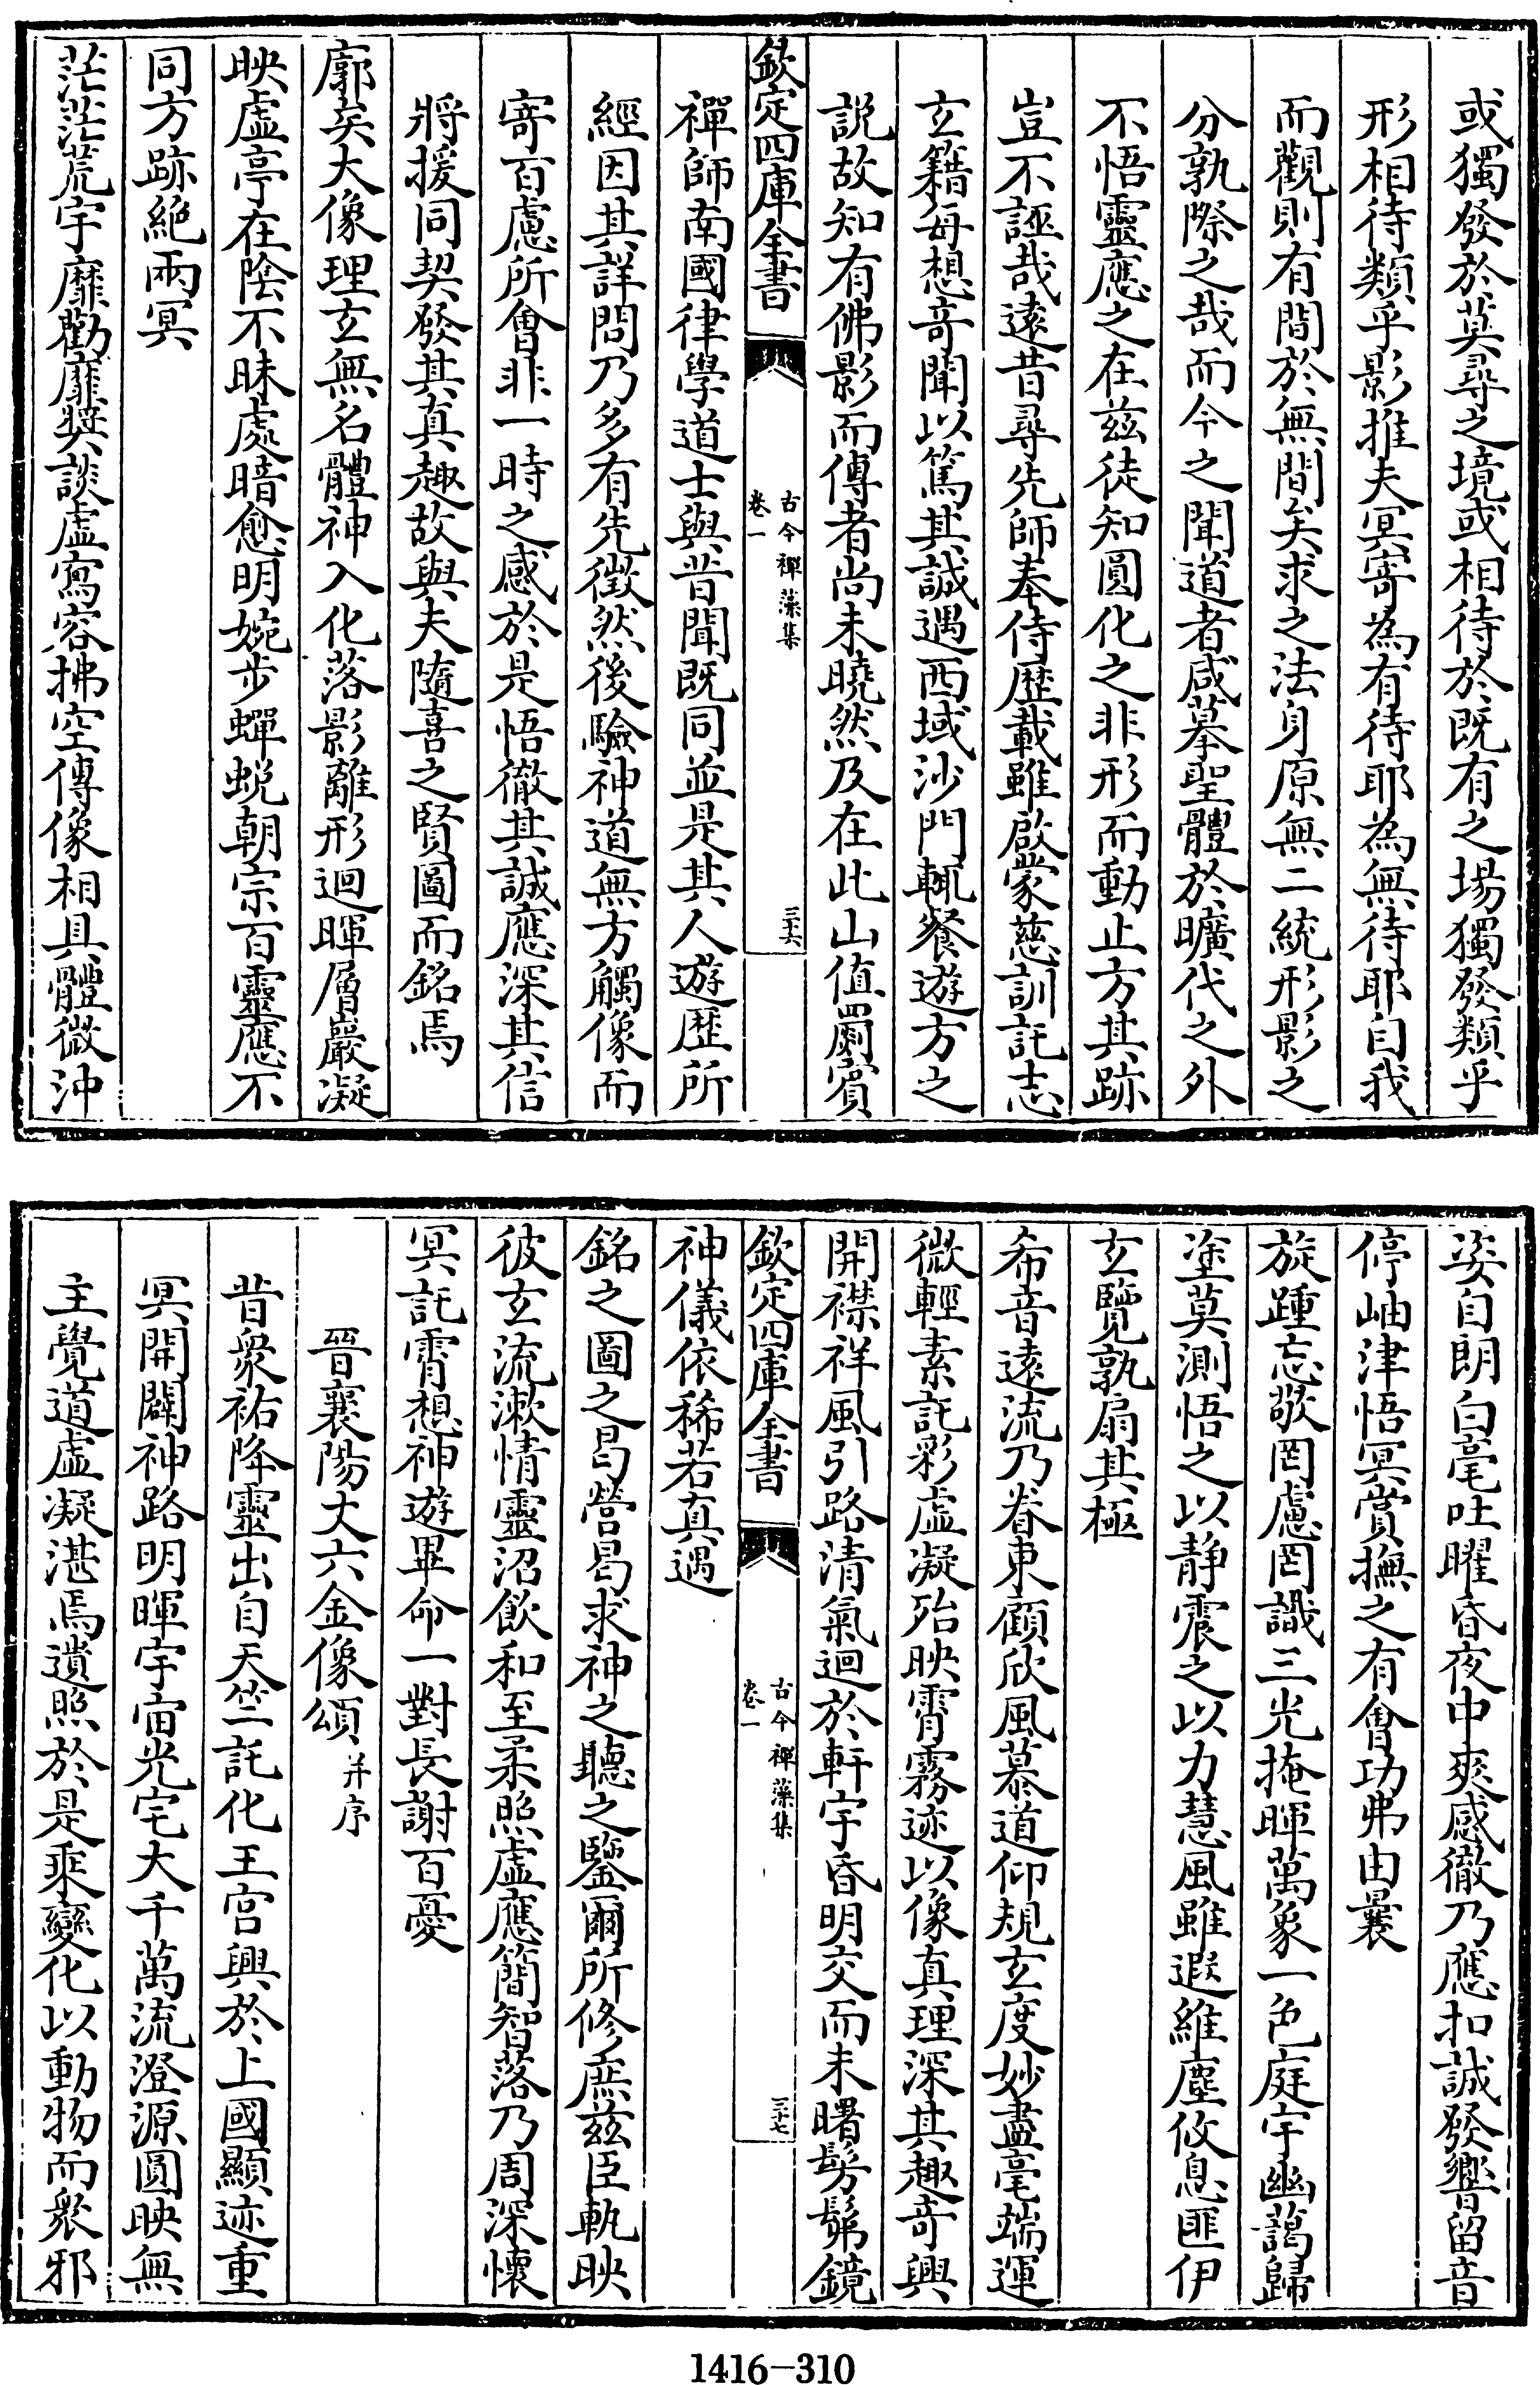 或獨發於莫尋之境或相待於既有之場獨發類乎
形相待類乎影推夫冥寄為有待耶為無待耶自我
而觀則有間於無間矣求之法身原無二統形影之
分孰際之哉而今之聞道者咸摹聖體於曠代之外
不悟靈應之在兹徒知圓化之非形而動止方其跡
豈不誣哉遠昔尋先師奉侍歴載雖啟蒙慈訓託志
玄籍每想竒聞以篤其誠遇西域沙門輒餐遊方之
説故知有佛影而傳者尚未曉然及在此山值罽賓
欽定四庫全書
古今禪藻集
卷一
三十六
禪師南國律學道士與昔聞既同並是其人遊歴所
經因其詳問乃多有先徴然後驗神道無方觸像而
寄百慮所會非一時之感於是悟徹其誠應深其信
將援同契發其真趣故與夫隨喜之賢圖而銘焉
廓矣大像理玄無名體神入化落影離形迴暉層巖凝
映虚亭在陰不昧處暗愈明婉步蟬蜕朝宗百靈應不
同方跡絶兩冥
茫茫荒宇靡勸靡奬談虚寫容拂空傳像相具體微沖
姿自朗白毫吐曜昏夜中爽感徹乃應扣誠發響留音
停岫津悟冥賞撫之有會功弗由曩
旋踵忘敬罔慮罔識三光掩暉萬象一色庭宇幽藹歸
塗莫測悟之以静震之以力慧風雖遐維塵攸息匪伊
玄覽孰扇其極
希音遠流乃眷東顧欣風慕道仰規玄度妙盡毫端運
微輕素託彩虚凝殆映霄霧迹以像真理深其趣竒興
開襟祥風引路清氣迴於軒宇昏明交而未曙髣髴鏡
欽定四庫全書
古今禪藻集
卷一
三十七
神儀依稀若真遇
銘之圖之曷營曷求神之聽之鑒爾所修庶兹臣軌映
彼玄流漱情靈沼飲和至柔照虚應簡智落乃周深懷
冥託霄想神遊畢命一對長謝百憂
晉襄陽丈六金像頌并序
昔衆祐降靈出自天竺託化王宫興於上國顯迹重
冥開闢神路明暉宇宙光宅大千萬流澄源圓映無
主覺道虚凝湛焉遺照於是乘變化以動物而衆邪
1416-310